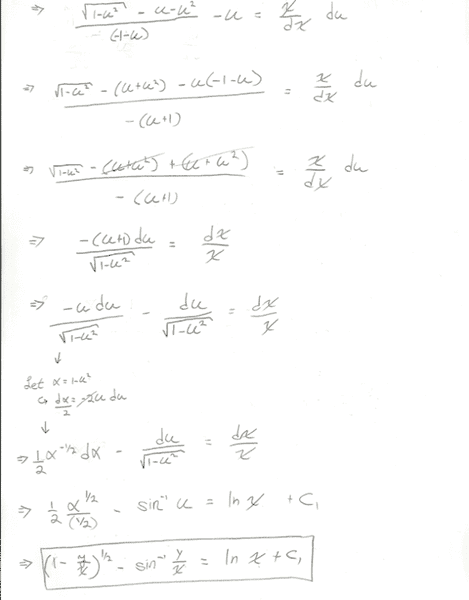 ⇒ (√(1-u²) - u - u²)/(-(1-u)) - u = x/dx du
⇒ (√(1-u²) - (u+u²) - u(-1-u))/(-(u+1)) = x/dx du
⇒ (√(1-u²) - (u+u²) + (u+u²))/(-(u+1)) = x/dx du
⇒ (-(u+1)du)/√(1-u²) = dx/x
⇒ (-u du)/√(1-u²) - du/√(1-u²) = dx/x
↓
Let α = 1-u²
↳ dα/2 = -2u du
↓
⇒ 1/2 α^(-1/2) dα - du/√(1-u²) = dx/x
⇒ 1/2 α^(1/2)/(1/2) - sin⁻¹ u = ln x + C₁
⇒ (1 - y/x)^(1/2) - sin⁻¹ y/x = ln x + C₁